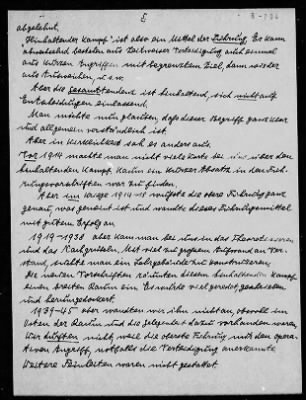 5
abgelehnt.
"Hinhaltender Kampf" ist also ein Mittel der Führung. Er kann
abwechselnd bestehen aus zeitweiser Verteidigung, auch einmal
aus kurzen Angriffen mit begrenztem Ziel, dann wieder
aus Ausweichen, u.s.w.
Aber die Gesamttendenz ist hinhaltend, sich nicht auf
Entscheidungen einlassend.
Man möchte nun glauben, dass dieser Begriff ganz klar
und allgemein verständlich ist.
Aber in Wirklichkeit sah es anders aus.
Vor 1914 machte man nicht viele Worte bei uns über den
hinhaltenden Kampf. Kaum ein kurzer Absatz in den Füh-
rungsvorschriften war zu finden.
Aber im Kriege 1914-18 wusste die obere Führung ganz
genau, was gemeint ist und wandte dieses Führungsmittel
mit gutem Erfolg an.
1919-1938 aber kam man bei uns in das Theoretisieren
und das Nachgrübeln. Mit viel zu großem Aufwand an Ver-
stand, suchte man ein Lehrgebäude zu konstruieren.
Die neuen Vorschriften räumten diesem hinhaltenden Kampf
einen breiten Raum ein. Es wurde viel geredet, geschrieben
und herumgedoktert.
1939-45 aber wandten wir ihn nicht an, obwohl im
Osten der Raum und die Gelegenheit dazu vorhanden waren.
Wir durften nicht, weil die oberste Führung nur den opera-
tiven Angriff, notfalls die Verteidigung anerkannte.
Weitere Feinheiten waren nicht gestattet.